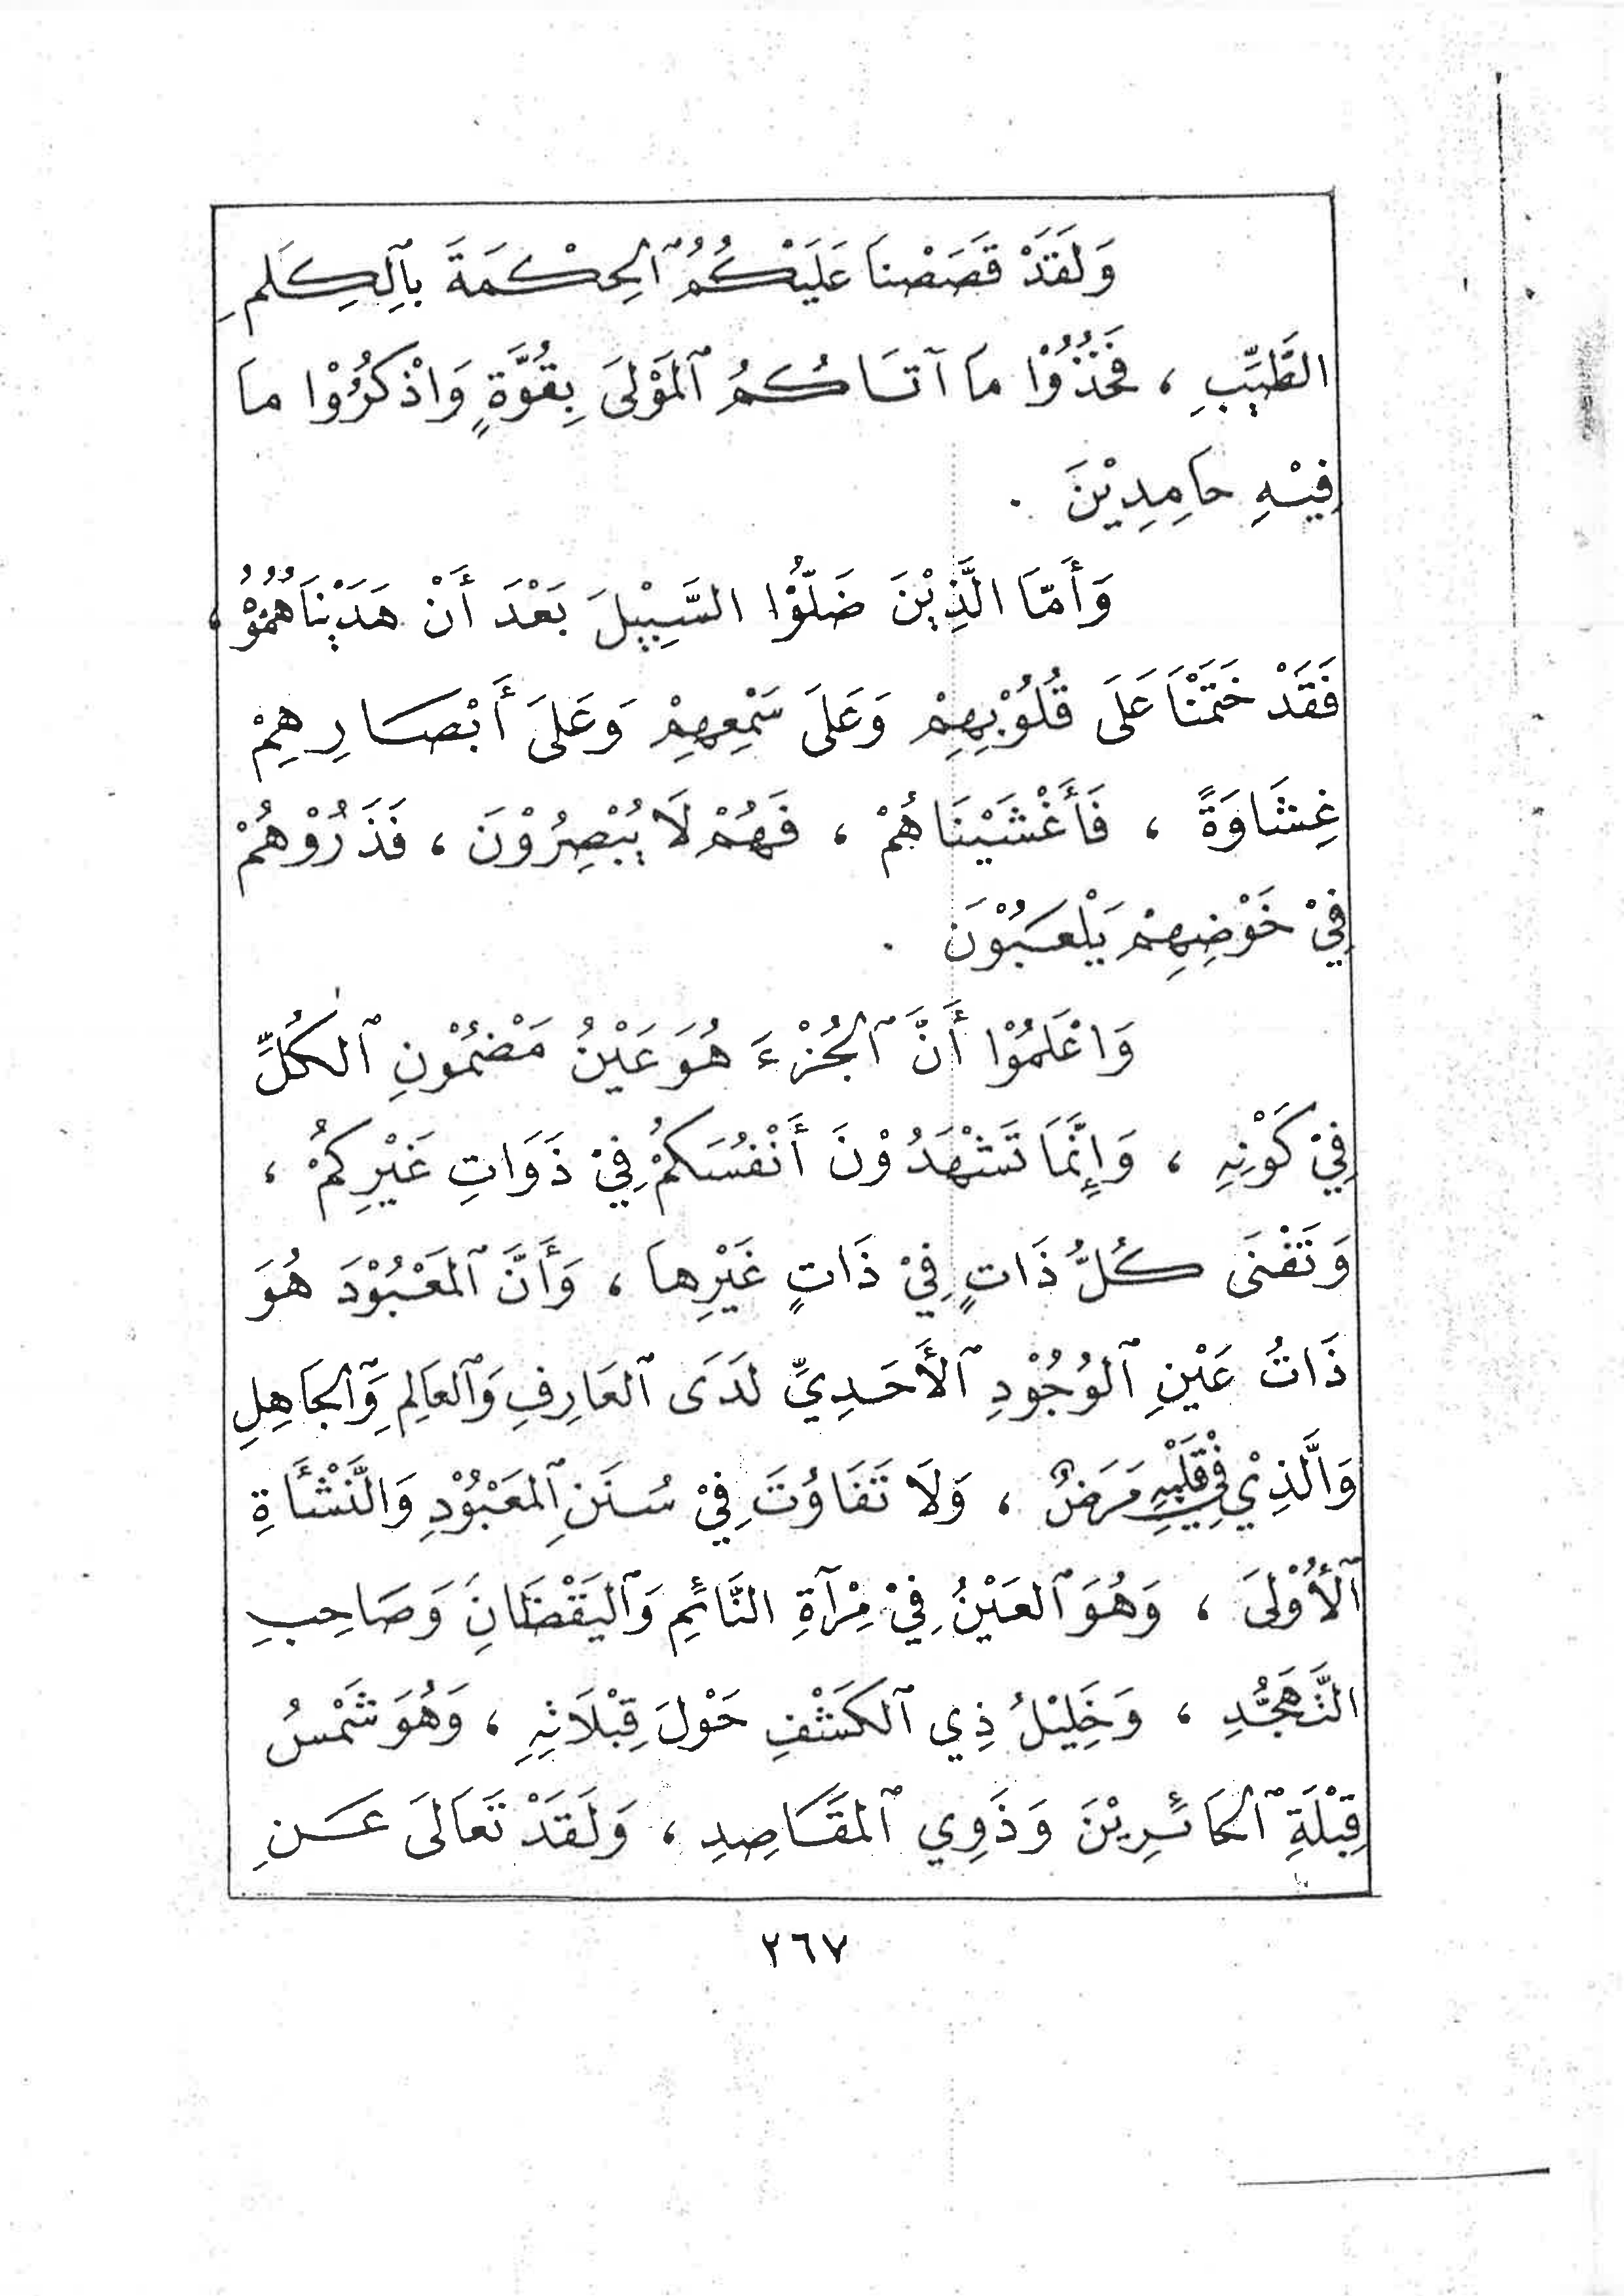 وَلَقَدْ قَصَصْنَا عَلَيْكُمُ ٱلحِكْمَةَ بِٱلكَلِمِ
الطَّيِّبِ ، فَخُذُوْا مَا آتَاكُمُ ٱلمَوْلَى بِقُوَّةٍ وَاذْكُرُوْا ما
فِيْهِ حَامِدِيْنَ .
وَأَمَّا الَّذِيْنَ ضَلُّوْا السَّبِيْلَ بَعْدَ أَنْ هَدَيْنَاهُمُوْ ،
فَقَدْ خَتَمْنَا عَلَى قُلُوْبِهِمْ وَعَلَى سَمْعِهِمْ وَعَلَى أَبْصَارِهِمْ
غِشَاوَةً ، فَأَغْشَيْنَاهُمْ ، فَهُمْ لَا يُبْصِرُوْنَ ، فَذَرُوْهُمْ
فِيْ خَوْضِهِمْ يَلْعَبُوْنَ .
وَاعْلَمُوْا أَنَّ ٱلجُزْءَ هُوَ عَيْنُ مَضْمُوْنِ ٱلكُلِّ
فِيْ كَوْنِهِ ، وَإِنَّمَا تَشْهَدُوْنَ أَنْفُسَكُمْ فِيْ ذَوَاتِ غَيْرِكُمْ ،
وَتَفْنَى كُلُّ ذَاتٍ فِيْ ذَاتٍ غَيْرِها ، وَأَنَّ ٱلمَعْبُوْدَ هُوَ
ذَاتُ عَيْنِ ٱلوُجُوْدِ ٱلأَحَدِيِّ لَدَى ٱلعَارِفِ وَٱلعَالِمِ وَٱلجَاهِلِ
وَالَّذِيْ فِيْ قَلْبِهِ مَرَضٌ ، وَلَا تَفَاوُتَ فِيْ سُنَنِ ٱلمَعْبُوْدِ وَالنَّشْأَةِ
ٱلأُوْلَى ، وَهُوَ ٱلعَيْنُ فِيْ مِرْآةِ النَّائِمِ وَٱليَقْظَانِ وَصَاحِبِ
التَّهَجُّدِ ، وَخَلِيْلُ ذِي ٱلكَشْفِ حَوْلَ قِبْلَاتِهِ ، وَهُوَ شَمْسُ
قِبْلَةِ ٱلحَائِرِيْنَ وَذَوِي ٱلمَقَاصِدِ ، وَلَقَدْ تَعَالَى عَنِ
٢٦٧